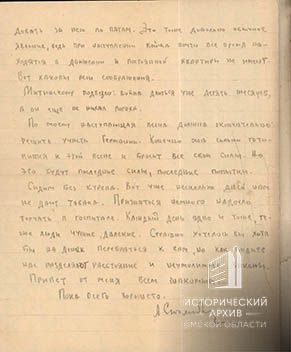 довать за нею по пятам. Это тоже довольно обычное
явление, ведь при наступлении войска почти все время на-
ходятся в движении и постоянной квартиры не имеют.
Вот каковы мои соображения.
Митинскому повезло: воевал уже десять месяцев,
а он еще не нюхал пороха.
По моему наступающая весна должна окончательно
решить участь Германии. Конечно она сильно гото-
вится к этой весне и бросит все свои силы. Но
это будут последние силы, последние попытки.
Сидим без курева. Вот уже несколько дней нам
не дают табака. Признаться немного надоело
торчать в госпитале. Каждый день одно и тоже, те
же люди чужие, далекие. Страшно хотелось бы хотя
бы на денек перебраться к вам, но как видите
нас разделяет расстояние и неумолимые законы.
Привет от меня всем знакомым.
Пока всего хорошего.
ИСТОРИЧЕСКИЙ
АРХИВ
ОМСКОЙ ОБЛАСТИ